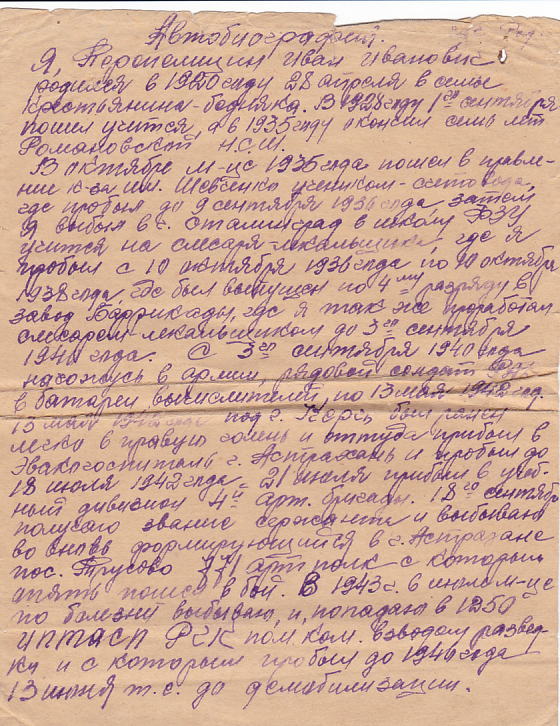 Автобиография.
Я, Перепелицин Иван Иванович
родился в 1920 году 28 апреля в семье
крестьянина-бедняка. В 1928 году 1го сентября
пошел учится, а в 1935 году окончил семь лет
Романовской Н.С.Ш.
В октябре м-це 1935 года пошел в правле-
ние к-за им. Шевченко учеником-счетовода,
где пробыл до 9 сентября 1936 года, затем
я выбыл в г. Сталинград в школу ФЗУ
учится на слесаря-лекальщика, где я
пробыл с 10 октября 1936 года по 10 октября
1938 года, где был выпущен по 4му разряду в
завод Баррикады, где я так же проработал
слесарем-лекальщиком до 3го сентября
1940 года. С 3го сентября 1940 года
нахожусь в армии, рядовой солдат
в батареи вычислителей, по 13 мая 1942 год.
13 мая 1942 года под г. Керчь был ранен
легко в правую голень и оттуда прибыл в
Эвакогоспиталь г. Астрахань и пробыл до
18 июля 1942 года. 21 июля прибыл в учеб-
ный дивизион 4й арт. бригады. 18го сентября
получаю звание сержанта и выбываю
во вновь формирующийся в г. Астрахане
пос. Трусово 771 артполк с которым
опять пошел в бой. В 1943 г. в июле м-це
по болезни выбываю, и, попадаю в 1250
ИПТАСП РГК пом. ком. взводом развед-
ки и с которым пробыл до 1946 года
13 июня т.с. до демобилизации.